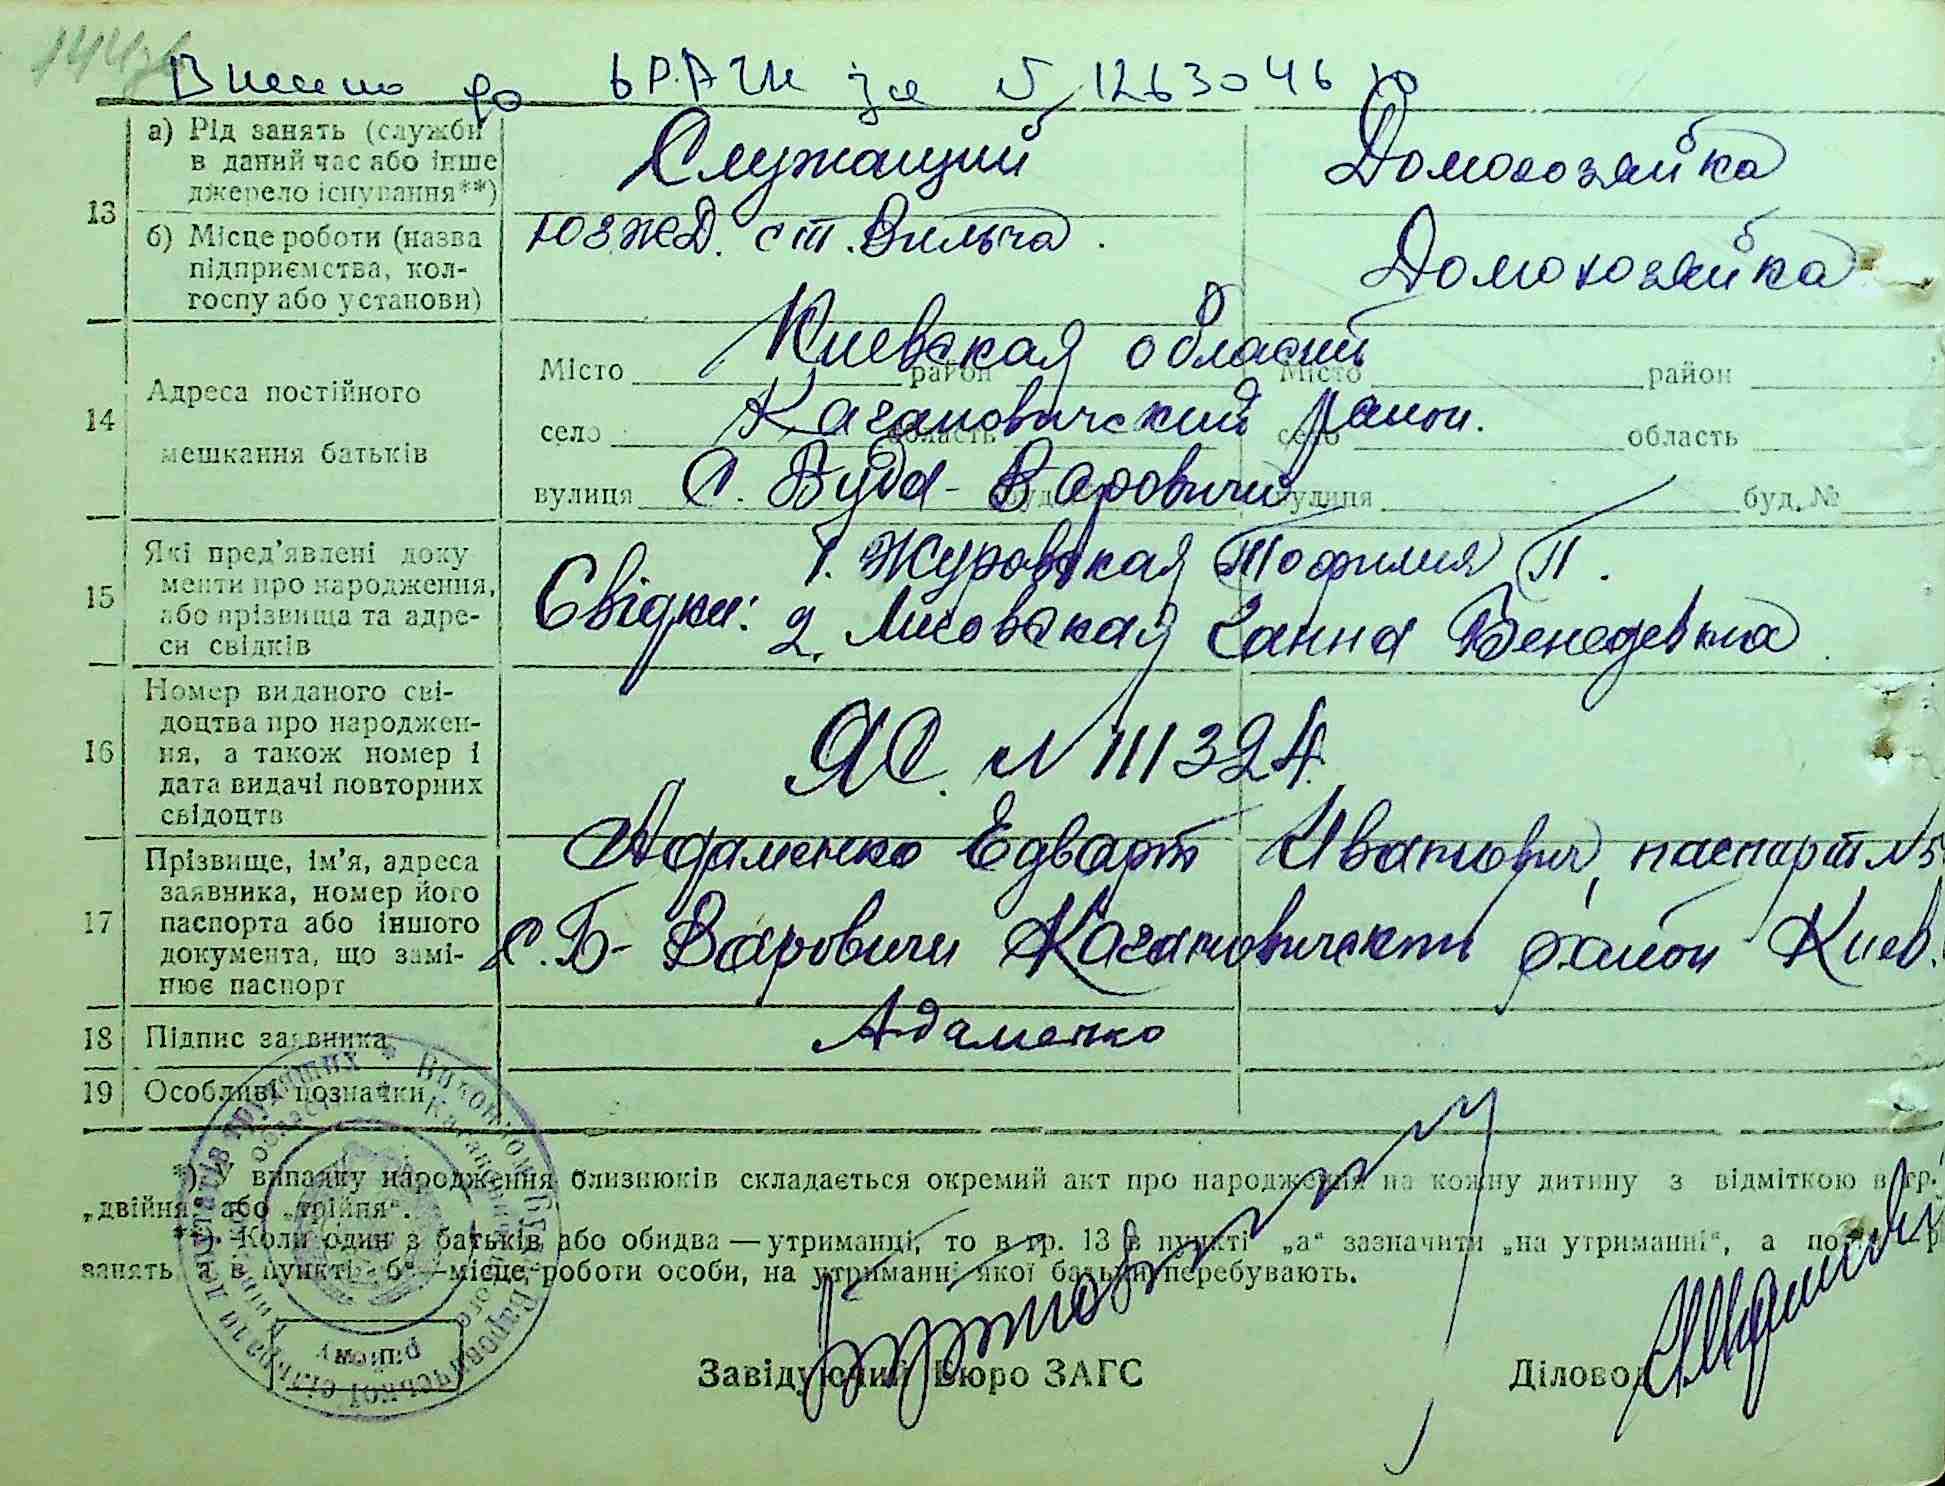 Внесено до ДРАЦС за № 1263046
13
а) Рід занять (служби в даний час або інше джерело існування**)
Служащий
Домохозяйка
б) Місце роботи (назва підприємства, колгоспу або установи)
ЮЗЖД. ст. Вильча.
Домохозяйка
14
Адреса постійного мешкання батьків
Місто район Місто район
Киевская область
село область село область
Кагановичский район.
вулиця буд. вулиця буд. №
с. Буда-Варовичи
15
Які пред'явлені документи про народження, або прізвища та адреси свідків
Свідки: 1. Журовская Тофилия П.
2. Лисовская Ганна
16
Номер виданого свідоцтва про народження, а також номер і дата видачі повторних свідоцтв
ЯС. № 111324.
17
Прізвище, ім'я, адреса заявника, номер його паспорта або іншого документа, що замінює паспорт
Адаменко Едварт Иванович, паспорт №
с. Б-Варовичи район Киев.
18
Підпис заявника
Адаменко
19
Особливі позначки
*) У випадку народження близнюків складається окремий акт про народження на кожну дитину з відміткою в гр.
„двійня“ або „трійня“.
**). Коли один з батьків або обидва — утриманці, то в гр. 13 в пункті „а“ зазначити „на утриманні“, а
занять, а в пункті „б“—місце роботи особи, на утриманні якої батьки перебувають.
Завідуючий Бюро ЗАГС
Діловод